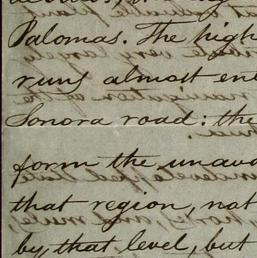 Palomas. The high
runs almost en
Sonora road: the
form the unava
that region, not
by that level, but